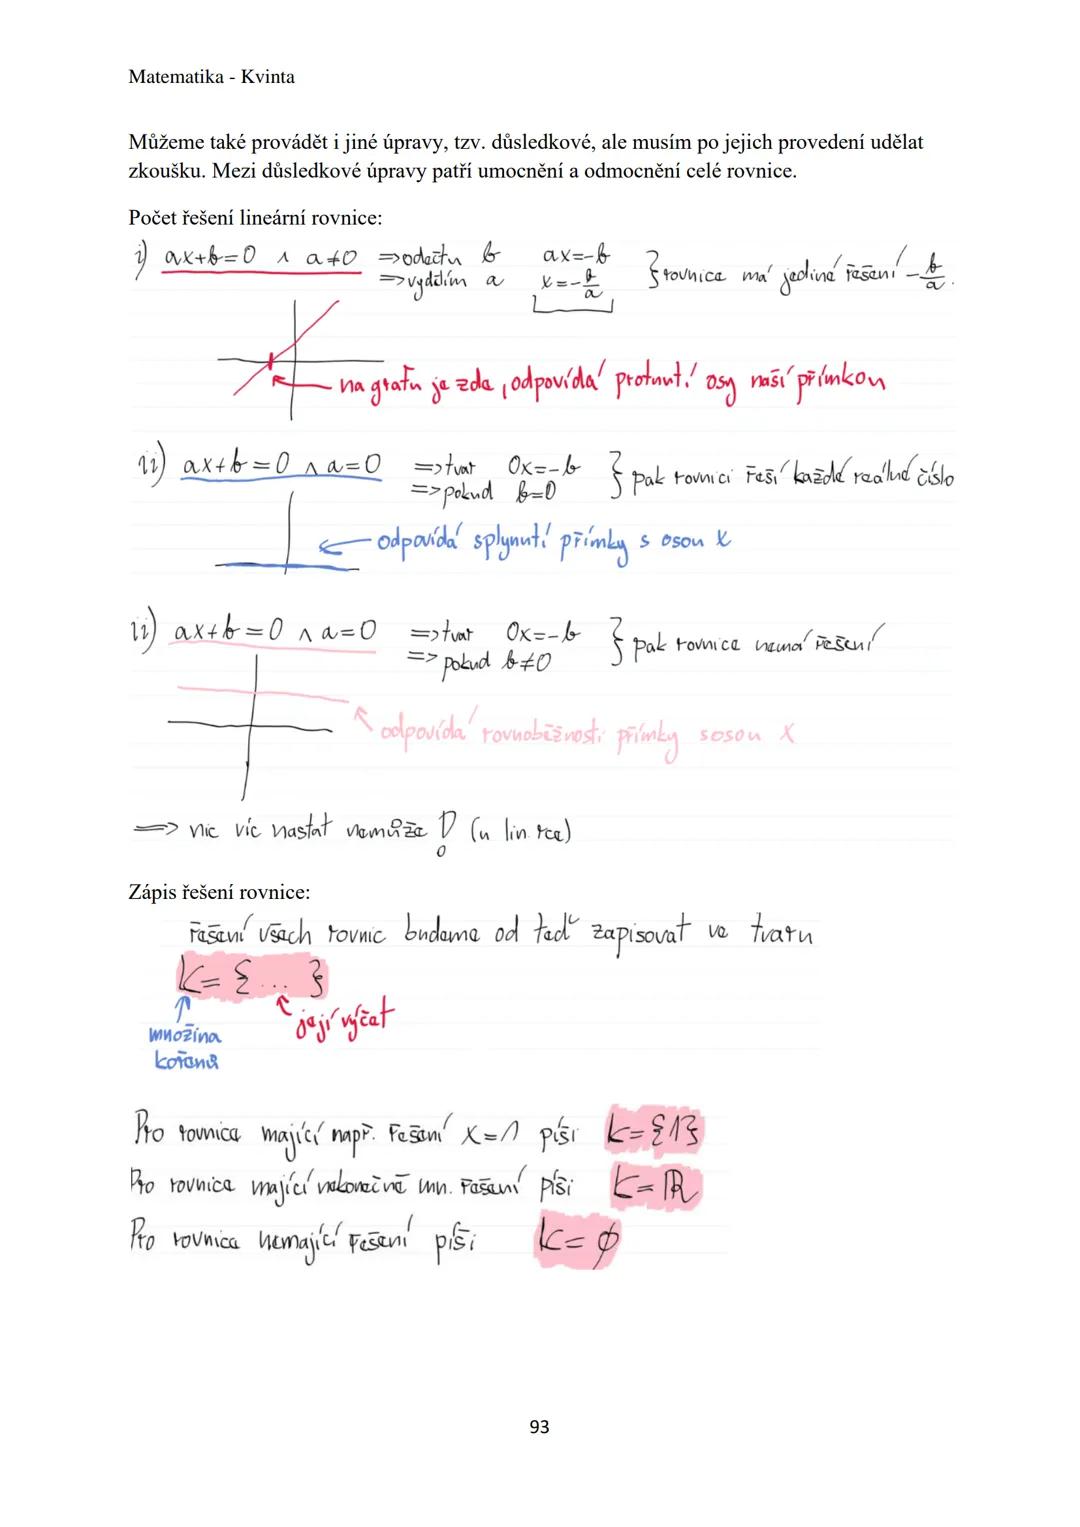 Matematika - Kvinta
Můžeme také provádět i jiné úpravy, tzv. důsledkové, ale musím po jejich provedení udělat
zkoušku. Mezi důsledkové úpravy patří umocnění a odmocnění celé rovnice.
Počet řešení lineární rovnice:
i) ax+b=0 ∧ a≠0 =>odečtu b ax=-b } rovnice má jediné řešení -b/a.
=>vydělím a x=-b/a
na grafu je zde, odpovídá protnutí osy naší přímkou
ii) ax+b=0 ∧ a=0 =>tvar 0x=-b } pak rovnici řeší každé reálné číslo
=>pokud b=0
odpovídá splynutí přímky s osou x
ii) ax+b=0 ∧ a=0 =>tvar 0x=-b } pak rovnice nemá řešení
=> pokud b≠0
odpovídá rovnoběžnosti přímky s osou x
=> nic víc nastat nemůže ! (u lin. rce)
Zápis řešení rovnice:
řešení všech rovnic budeme od teď zapisovat ve tvaru
K= {...}
její výčet
množina
kořenů
Pro rovnice mající např. řešení x=1 píši K={1}
Pro rovnice mající nekonečně mn. řešení píši K=ℝ
Pro rovnice nemající řešení píši K=∅
93